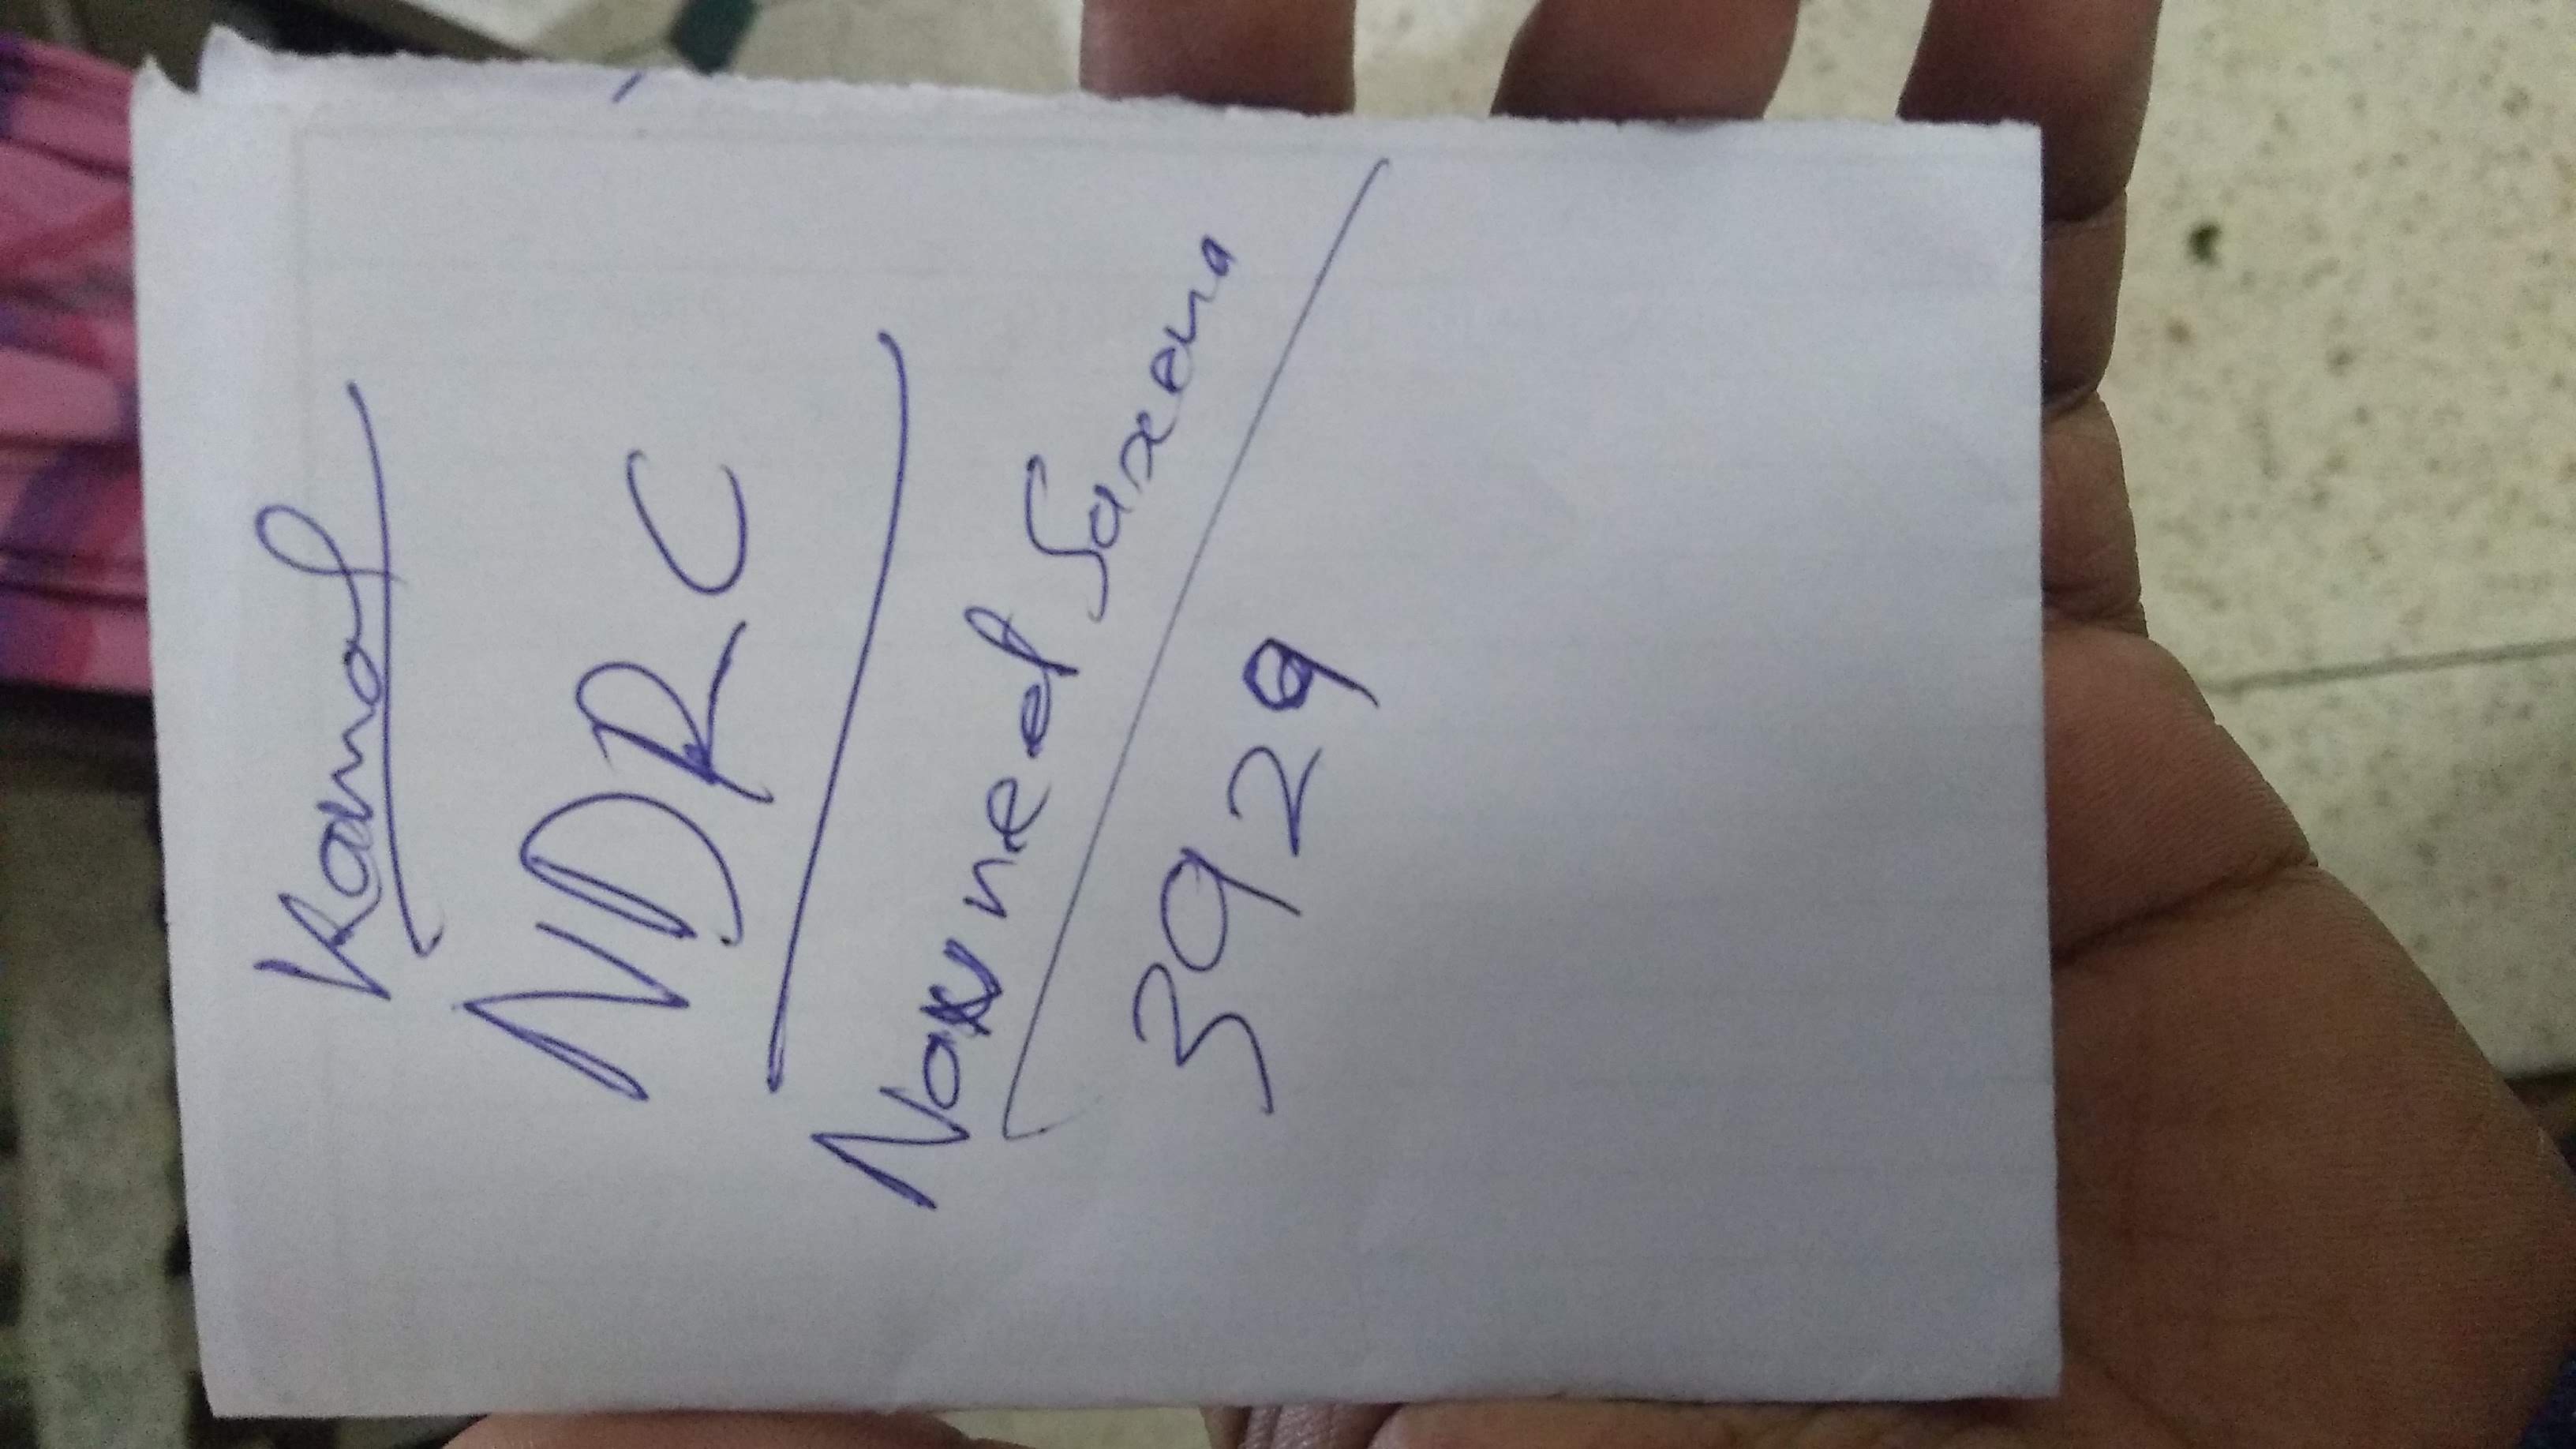 Kamal
NDRC
Navneet Saxena
3929